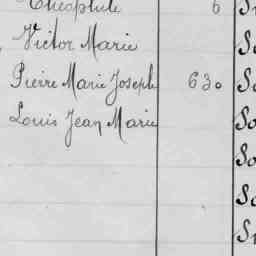 Théophile 6
Victor Marie
Pierre Marie Joseph 630
Louis Jean Marie